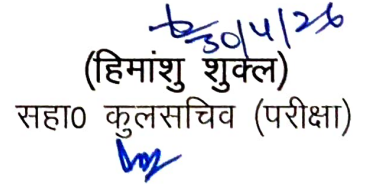 30/4/26
(हिमांशु शुक्ल)
सहा0 कुलसचिव (परीक्षा)